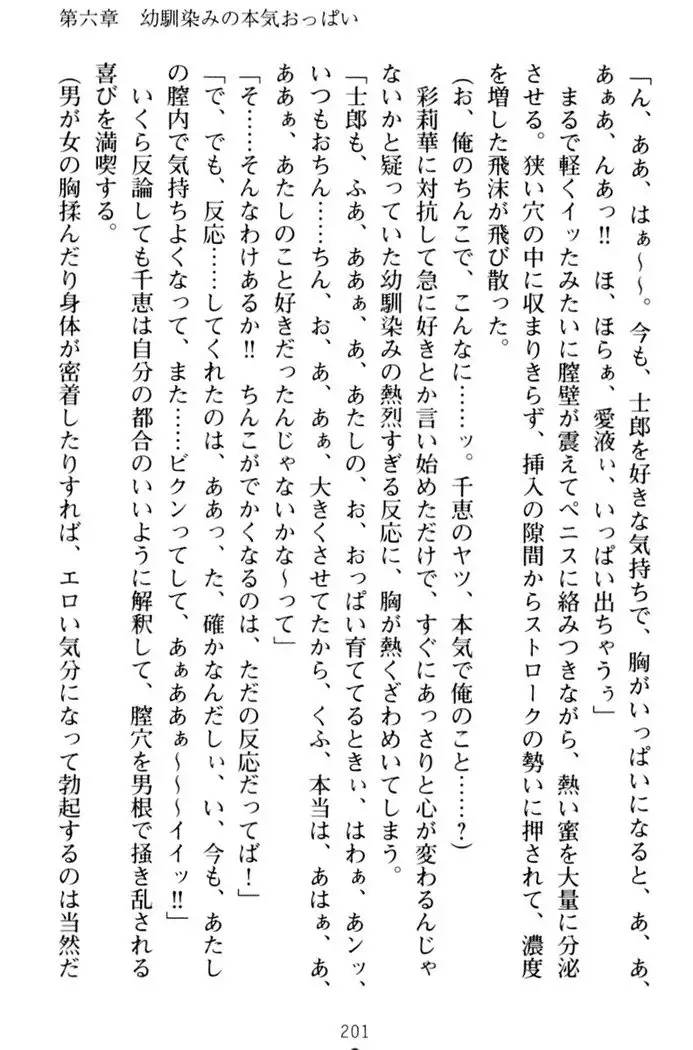 第六章　幼馴染みの本気おっぱい
「ん、ああ、はぁ～～。今も、士郎を好きな気持ちで、胸がいっぱいになると、あ、あ、
あぁあ、んあっ!!　ほ、ほらぁ、愛液ぃ、いっぱい出ちゃうぅ」
　まるで軽くイッたみたいに膣壁が震えてペニスに絡みつきながら、熱い蜜を大量に分泌
させる。狭い穴の中に収まりきらず、挿入の隙間からストロークの勢いに押されて、濃度
を増した飛沫が飛び散った。
（お、俺のちんこで、こんなに……ッ。千恵のヤツ、本気で俺のこと……？）
　彩莉華に対抗して急に好きとか言い始めただけで、すぐにあっさりと心が変わるんじゃ
ないかと疑っていた幼馴染みの熱烈すぎる反応に、胸が熱くざわめいてしまう。
「士郎も、ふあ、ああぁ、あ、あたしの、お、おっぱい育ててるときぃ、はわぁ、あンッ、
いつもおちん……ちん、お、あ、あぁ、大きくさせてたから、くふ、本当は、あはぁ、あ、
ああぁ、あたしのこと好きだったんじゃないかな～って」
「そ……そんなわけあるか!!　ちんこがでかくなるのは、ただの反応だってば！」
「で、でも、反応……してくれたのは、ああっ、た、確かなんだしぃ、い、今も、あたし
の膣内で気持ちよくなって、また……ビクンってして、あぁああぁ～～～イイッ!!」
　いくら反論しても千恵は自分の都合のいいように解釈して、膣穴を男根で掻き乱される
喜びを満喫する。
（男が女の胸揉んだり身体が密着したりすれば、エロい気分になって勃起するのは当然だ
201